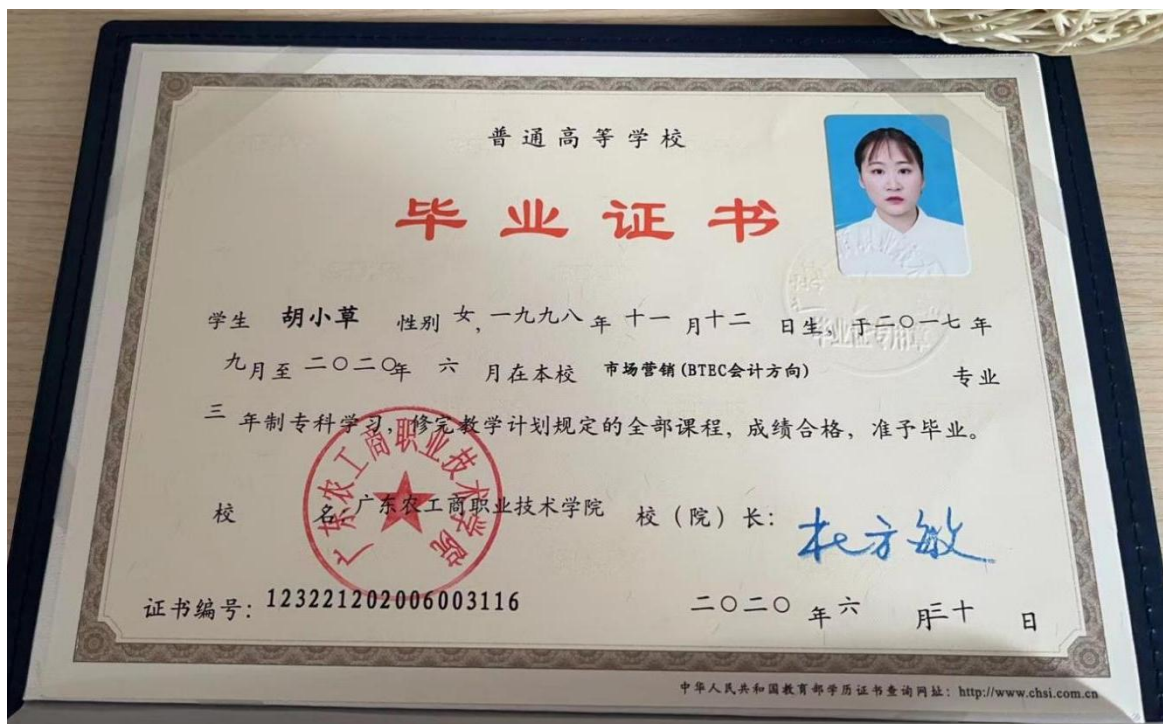 普通高等学校
毕业证书
学生 胡小草 性别 女，一九九八 年 十一 月 十二 日生，于二〇一七 年
九月至 二〇二〇年 六 月在本校 市场营销(BTEC会计方向) 专业
三 年制专科学习，修完教学计划规定的全部课程，成绩合格，准予毕业。
广东农工商职业技术学院
校 名：广东农工商职业技术学院 校（院）长：杜方敏
毕业证专用章
证书编号：123221202006003116 二〇二〇 年 六 月 三十 日
中华人民共和国教育部学历证书查询网址：http://www.chsi.com.cn